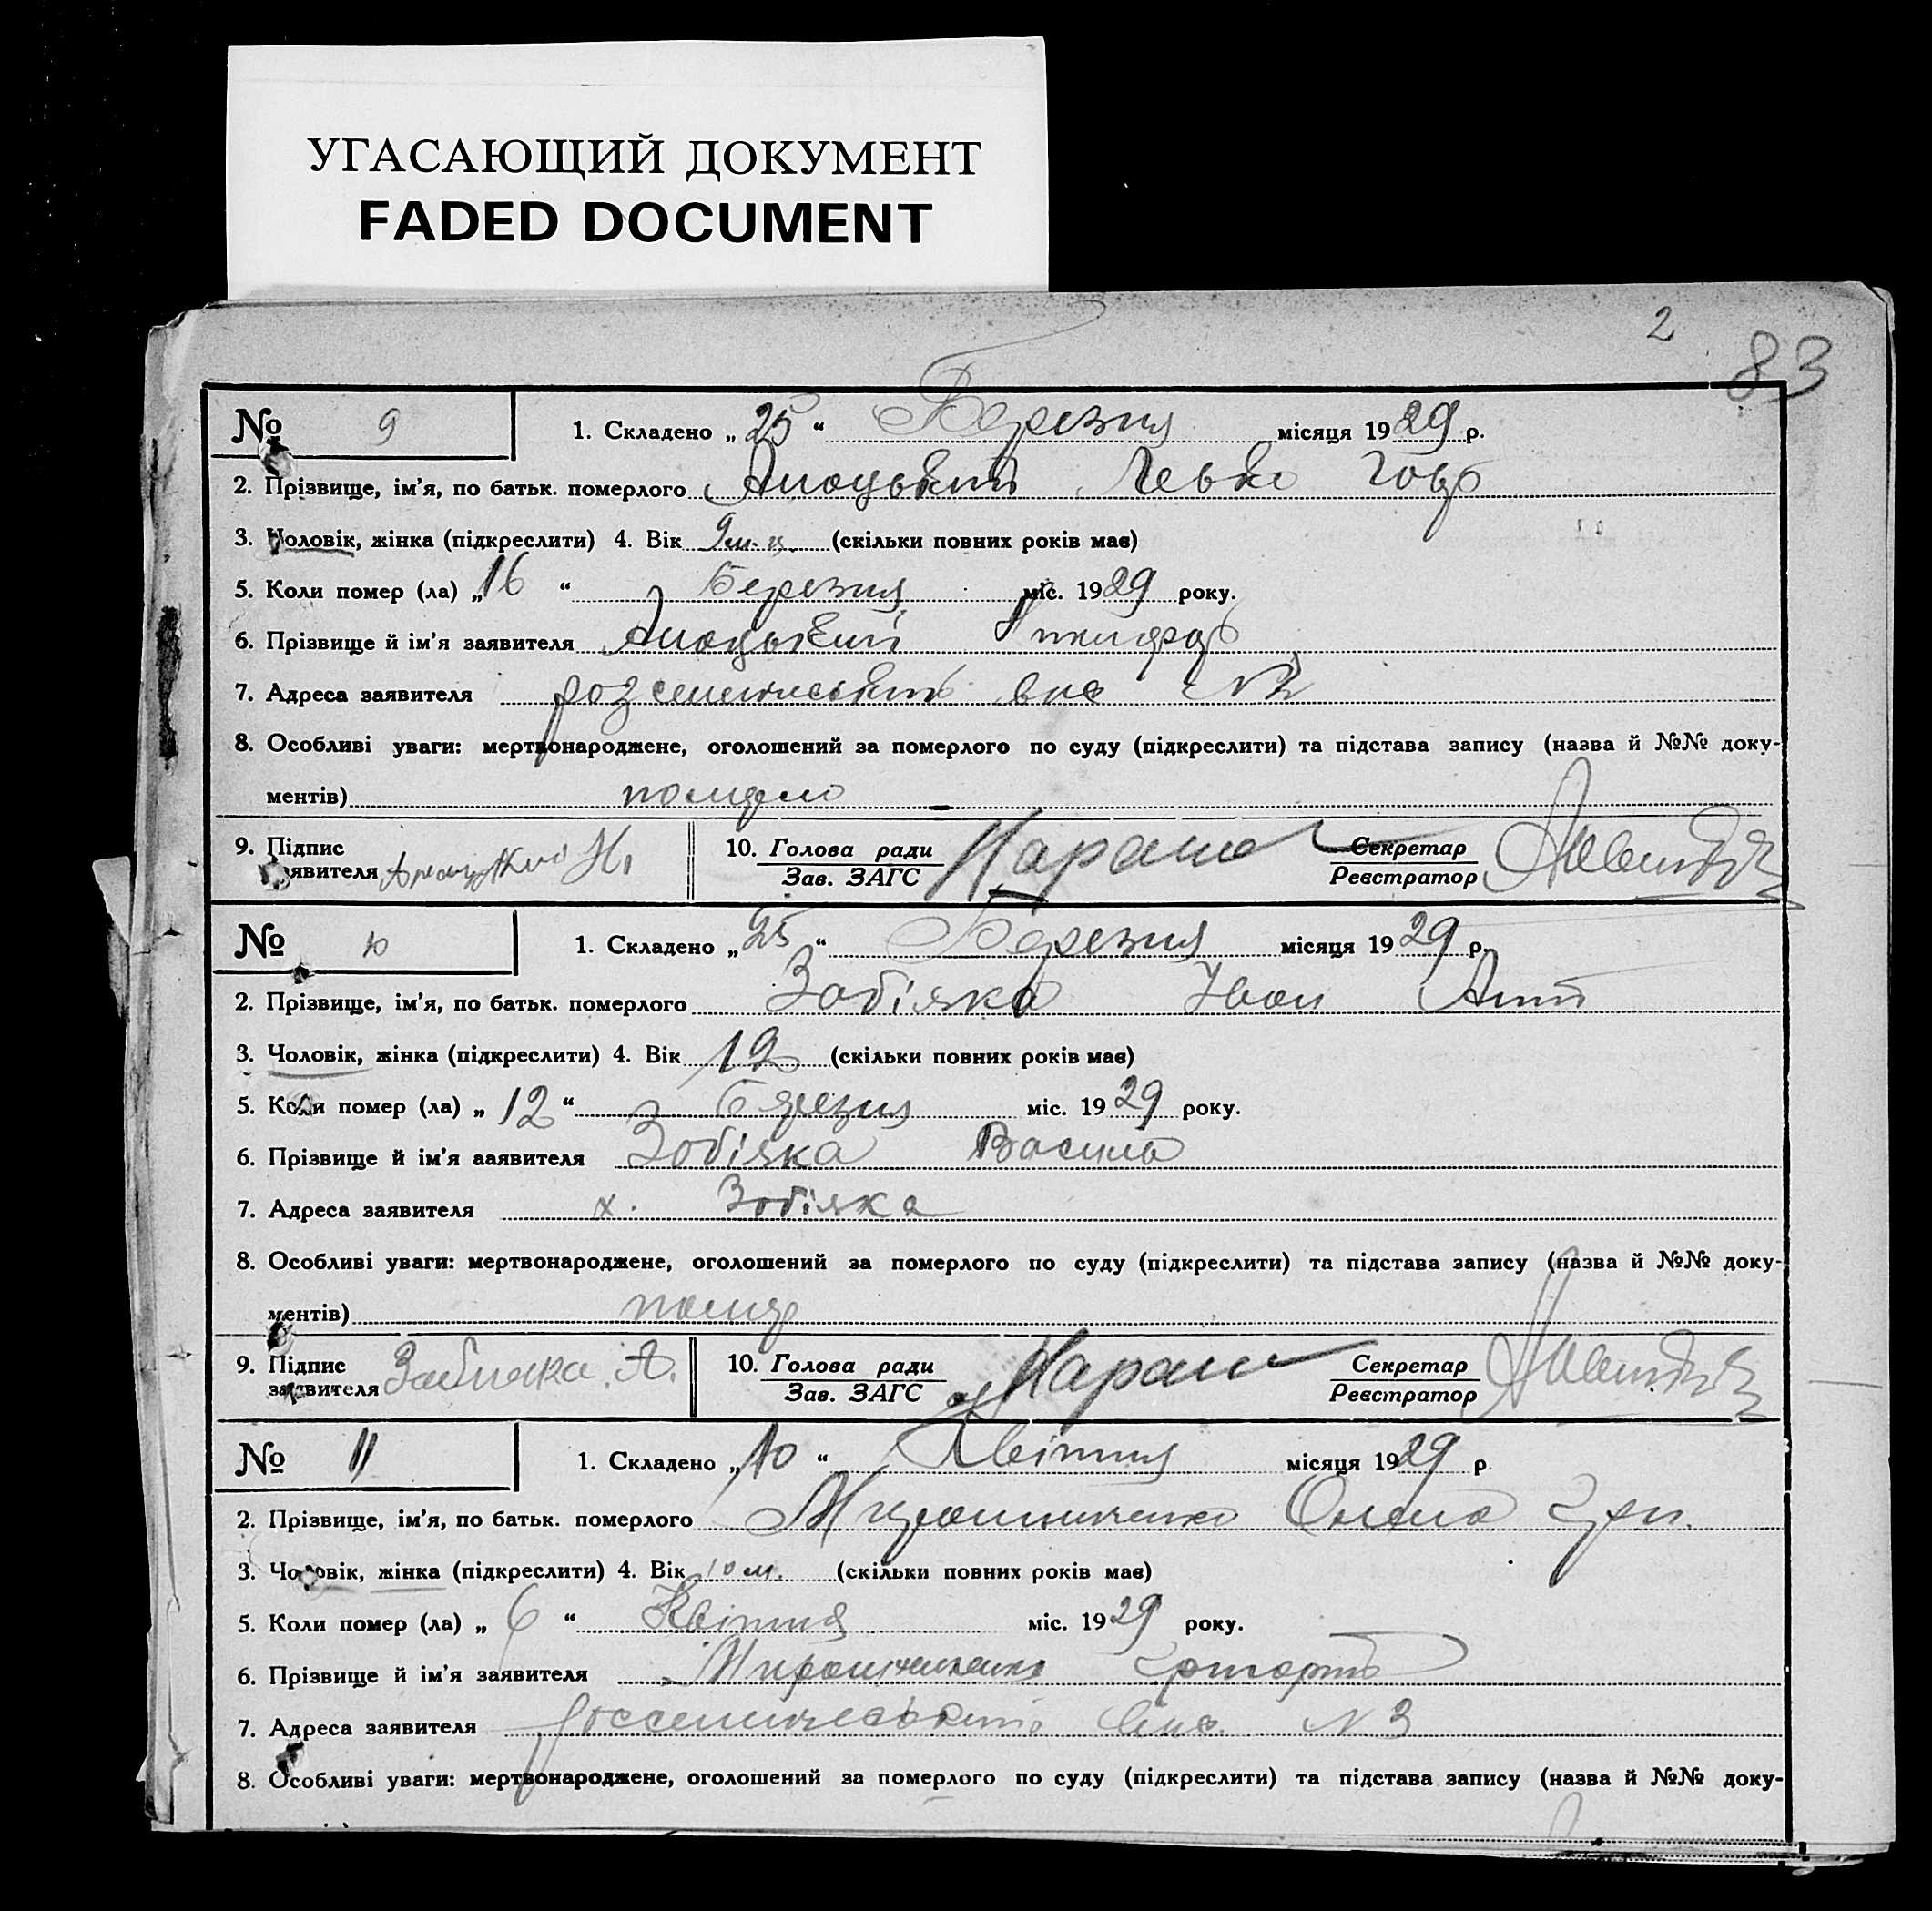 УГАСАЮЩИЙ ДОКУМЕНТ
FADED DOCUMENT
2
83
№ 9 1. Складено „25“ Березня місяця 1929 р.
2. Прізвище, ім'я, по батьк. померлого Левко
3. Чоловік, жінка (підкреслити) 4. Вік 9 м-ц. (скільки повних років має)
5. Коли помер (ла) „16“ Березня міс. 1929 року.
6. Прізвище й ім'я заявителя
7. Адреса заявителя
8. Особливі уваги: мертвонароджене, оголошений за померлого по суду (підкреслити) та підстава запису (назва й №№ доку-
ментів)
9. Підпис заявителя Н. 10. Голова ради Зав. ЗАГС Секретар Реєстратор
№ 10 1. Складено „25“ Березня місяця 1929 р.
2. Прізвище, ім'я, по батьк. померлого Забіяка Іван Ант
3. Чоловік, жінка (підкреслити) 4. Вік 12 (скільки повних років має)
5. Коли помер (ла) „12“ Березня міс. 1929 року.
6. Прізвище й ім'я ааявителя Забіяка Василь
7. Адреса заявителя х. Забіяка
8. Особливі уваги: мертвонароджене, оголошений за померлого по суду (підкреслити) та підстава запису (назва й №№ доку-
ментів)
9. Підпис заявителя Забияка. А. 10. Голова ради Зав. ЗАГС Секретар Реєстратор
№ 11 1. Складено „10“ Квітня місяця 1929 р.
2. Прізвище, ім'я, по батьк. померлого Мирошниченко Олена Гри.
3. Чоловік, жінка (підкреслити) 4. Вік 10 м. (скільки повних років має)
5. Коли помер (ла) „6“ Квітня міс. 1929 року.
6. Прізвище й ім'я заявителя Мирошниченко Григорій
7. Адреса заявителя N 3
8. Особливі уваги: мертвонароджене, оголошений за померлого по суду (підкреслити) та підстава запису (назва й №№ доку-